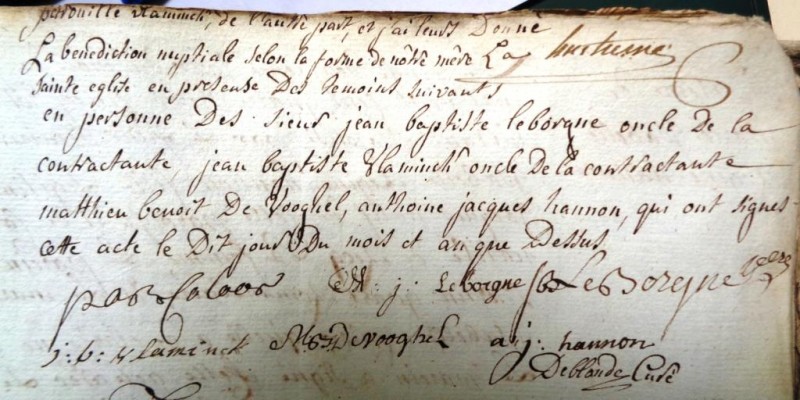 vlaminck, de l'autre part, et j'ai leurs Donné
La bénédiction nuptiale selon la forme de nôtre mére La
Sainte eglise en presense Des temoins suivants
en personne Des sieur jean baptiste leborgne oncle De la
contractante, jean baptiste Vlaminck oncle De la contractante
matthieu benoit De Vooghel, anthoine jacques hannon, qui ont signes
cette acte le Dit jour Du mois et an que Dessus
j: Leborgne LeBorgne
j: b: vlaminck Devooghel a j: hannon
Deblande Curé